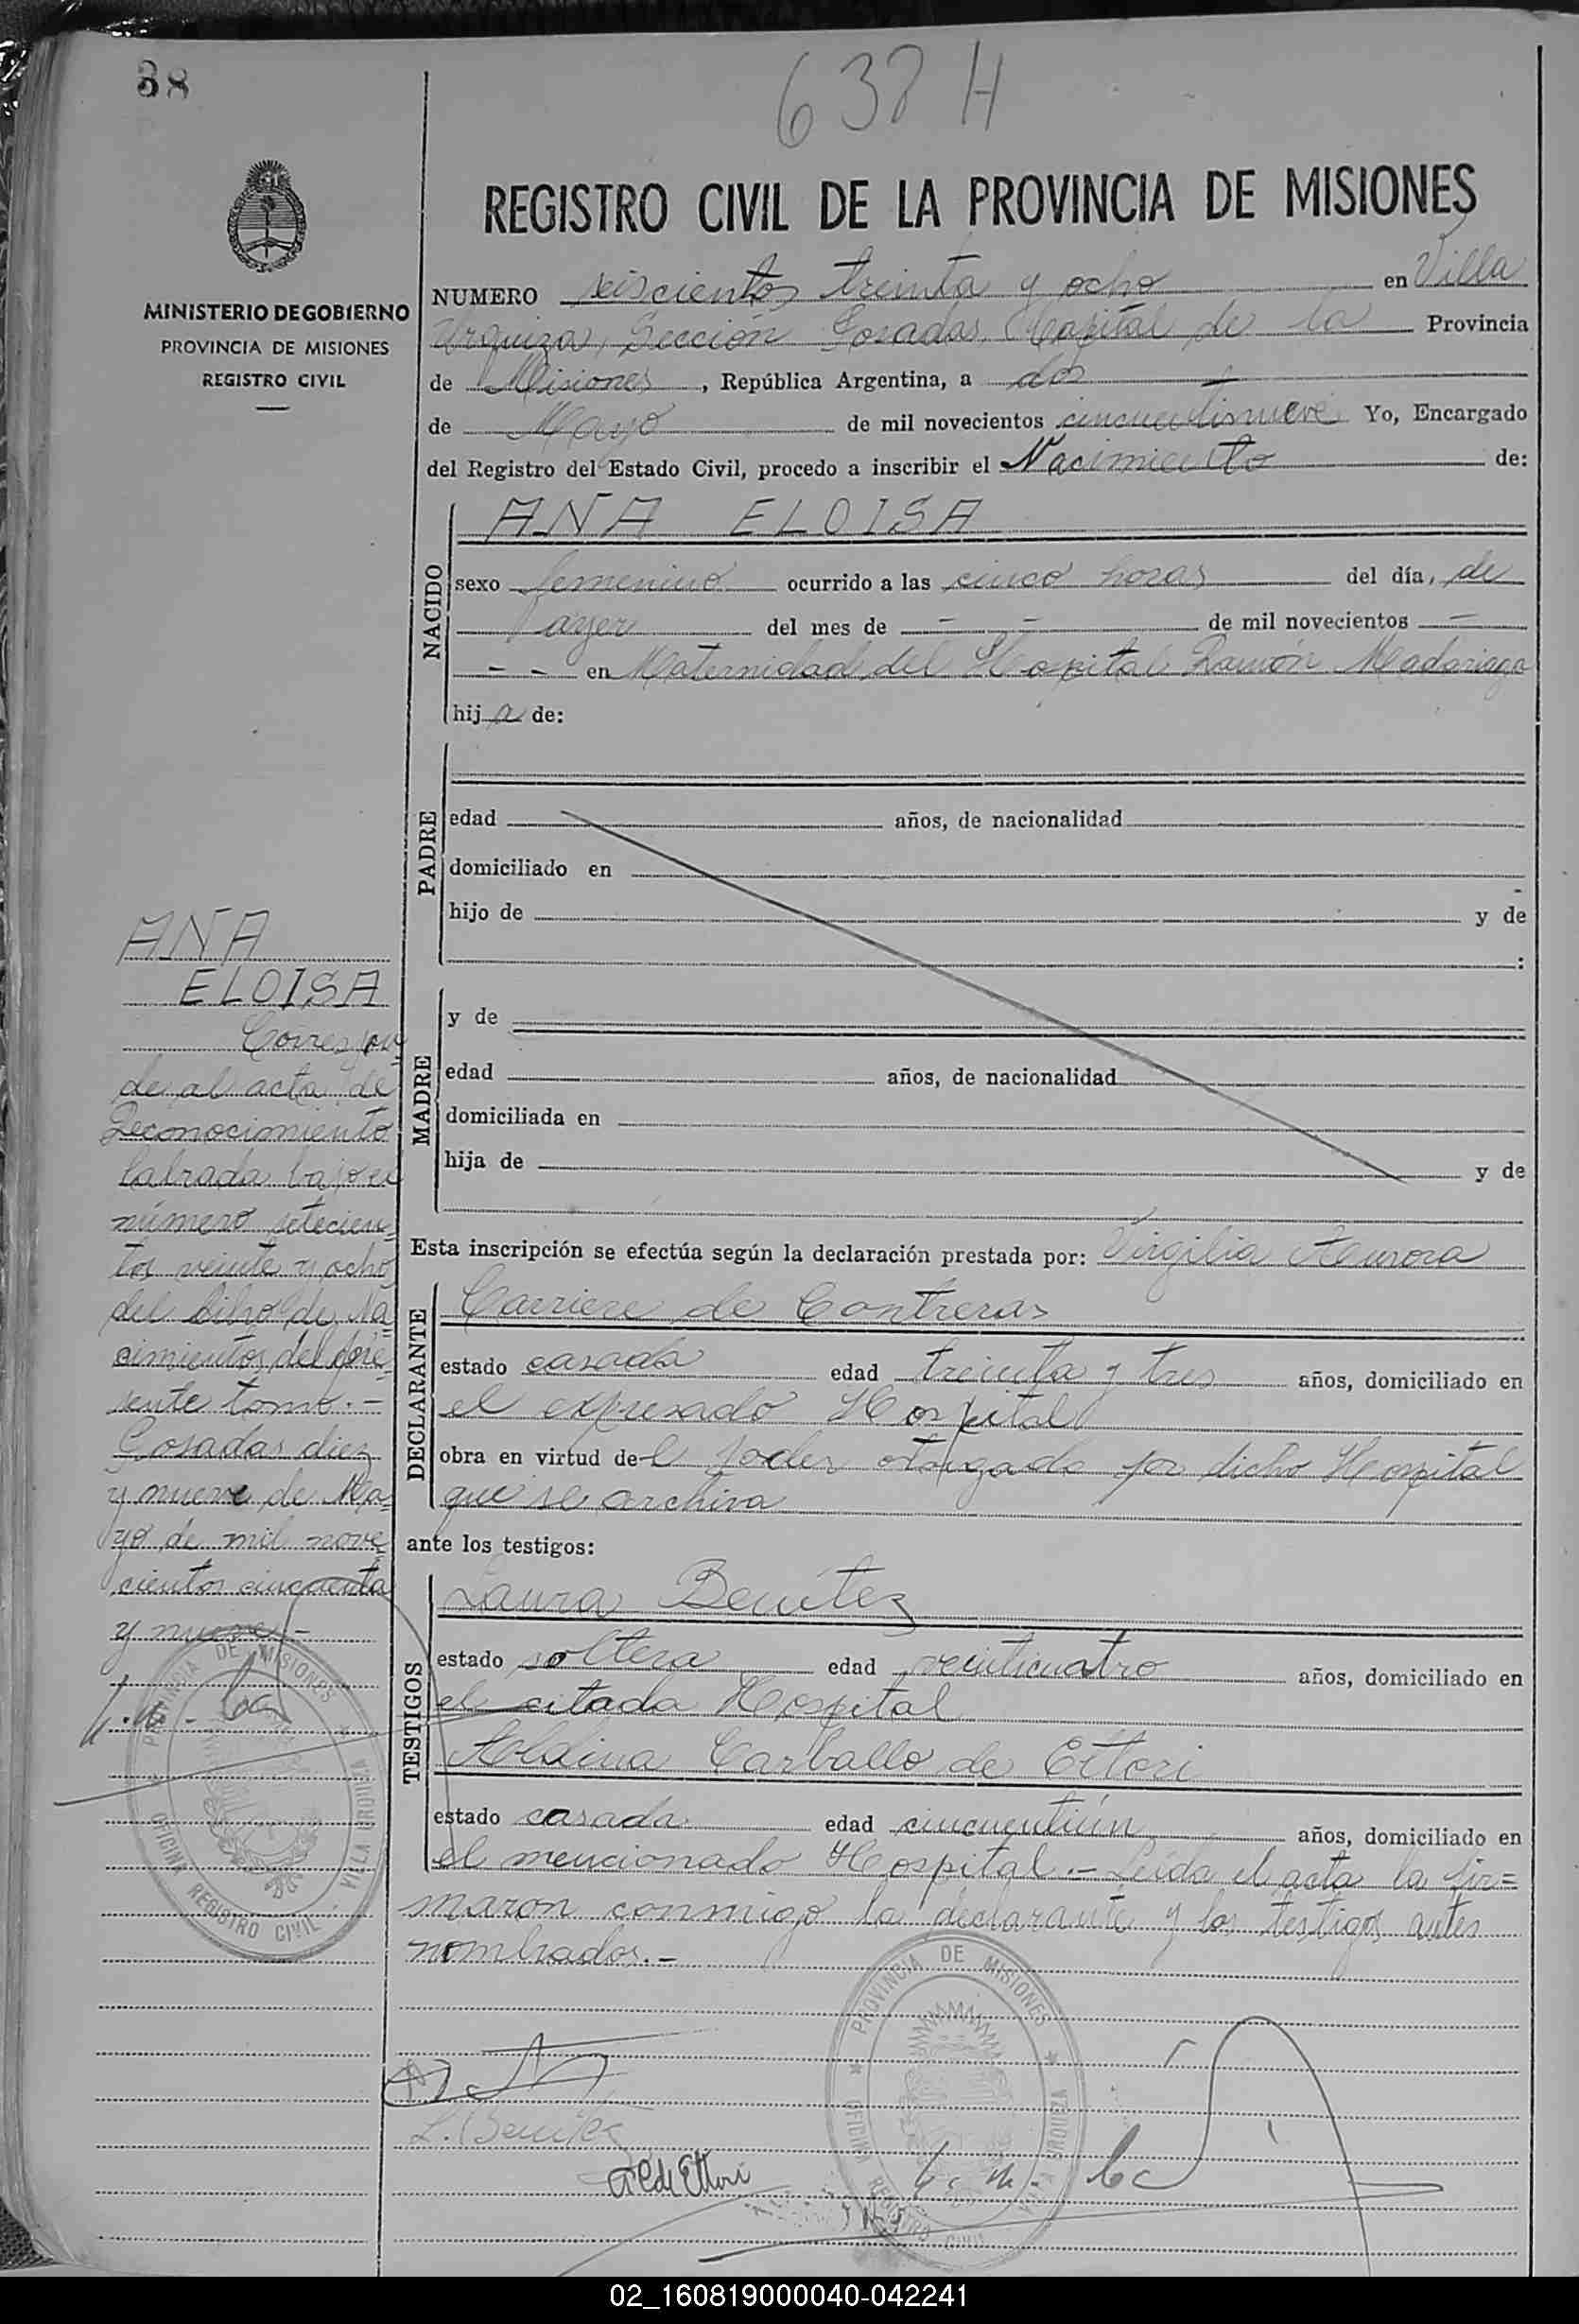 38
638 H
REGISTRO CIVIL DE LA PROVINCIA DE MISIONES
MINISTERIO DE GOBIERNO
PROVINCIA DE MISIONES
REGISTRO CIVIL
NUMERO seiscientos treinta y ocho en Villa
Urquiza, Sección Posadas, Capital de la Provincia
de Misiones, República Argentina, a dos
de Mayo de mil novecientos cincuentinueve Yo, Encargado
del Registro del Estado Civil, procedo a inscribir el Nacimiento de:
NACIDO
ANA ELOISA
sexo femenino ocurrido a las cinco horas del día, de
ayer del mes de - - de mil novecientos -
- - en Maternidad del Hospital Ramón Madariaga
hija de:
PADRE
edad años, de nacionalidad
domiciliado en
hijo de y de
:
MADRE
y de
edad años, de nacionalidad
domiciliada en
hija de y de
Esta inscripción se efectúa según la declaración prestada por: Virgilia Aurora
DECLARANTE
Carriere de Contreras
estado casada edad treinta y tres años, domiciliado en
el expresado Hospital
obra en virtud del poder otorgado por dicho Hospital
que se archiva
ante los testigos:
TESTIGOS
Laura Benítez
estado soltera edad veinticuatro años, domiciliado en
el citado Hospital
Aldina Carballo de Ettori
estado casada edad cincuentiún años, domiciliado en
el mencionado Hospital.- Leída el acta la fir=
maron conmigo la declarante y los testigos antes
nombrados.-
L. Benítez
A C de Ettori
ANA
ELOISA
Correspon
de al acta de
Reconocimiento
labrada bajo el
número setecien
tos veinte y ocho
del libro de Na
cimientos del pre=
sente tomo.-
Posadas diez
y nueve de Ma=
yo de mil nove
cientos cincuenta
y nueve.-
PROVINCIA DE MISIONES
OFICINA REGISTRO CIVIL
VILLA URQUIZA
PROVINCIA DE MISIONES
OFICINA REGISTRO CIVIL
VILLA URQUIZA
02_160819000040-042241